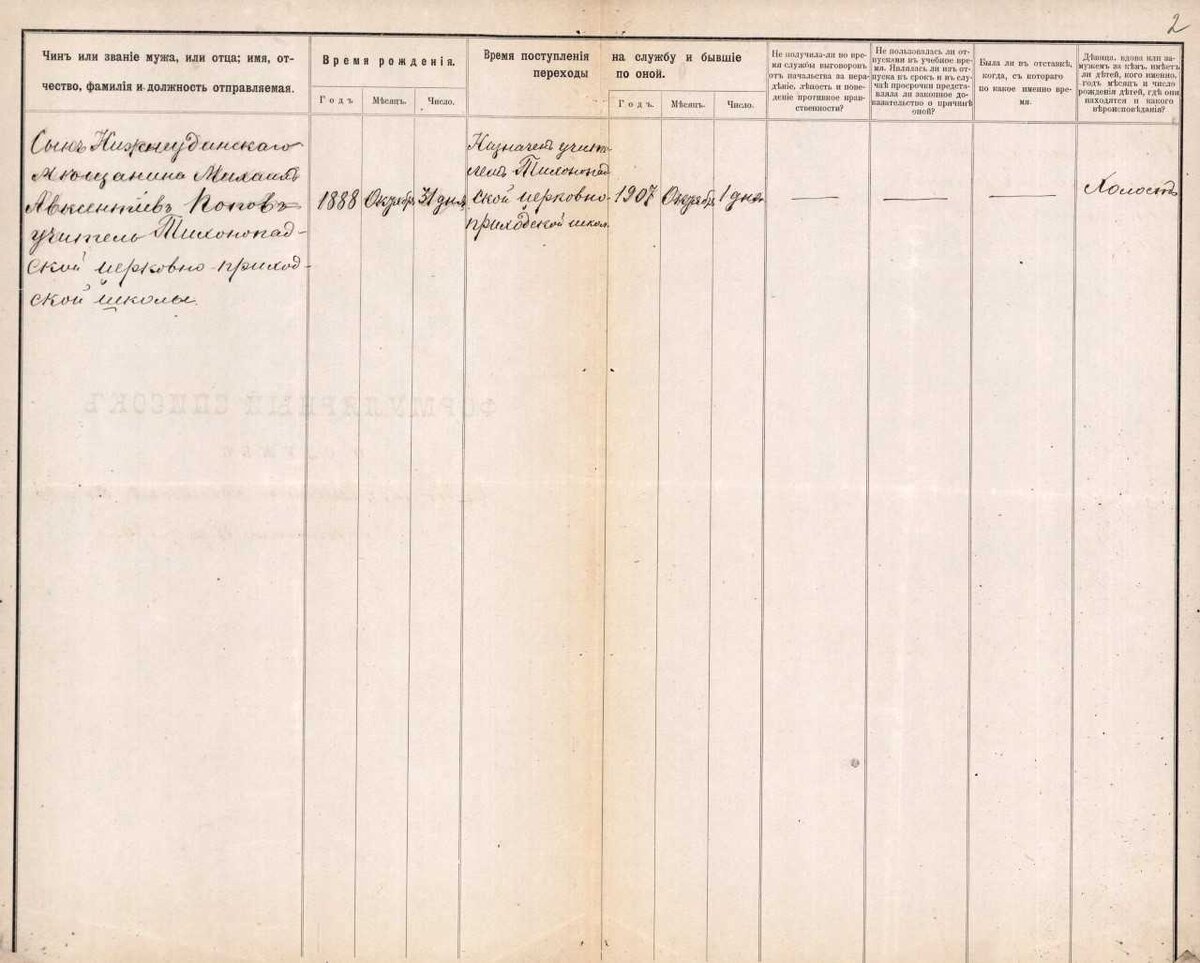 2
Чинъ или званіе мужа, или отца; имя, от-
чество, фамилія и должность отправляемая.
Время рожденія.
Годъ.
Мѣсяцъ.
Число.
Время поступленія на службу и бывшіе
переходы по оной.
Годъ.
Мѣсяцъ.
Число.
Не получила-ли во вре-
мя службы выговоровъ
отъ начальства за нера-
дѣніе, лѣность и пове-
деніе противное нрав-
ственности?
Не пользовалась ли от-
пусками въ учебное вре-
мя. Являлась ли изъ от-
пуска въ срокъ и въ слу-
чаѣ просрочки предста-
вляла ли законное до-
казательство о причинѣ
оной?
Была ли въ отставкѣ,
когда, съ котораго
по какое именно вре-
мя.
Дѣвица, вдова или за-
мужемъ за кѣмъ, имѣетъ
ли дѣтей, кого именно,
годъ мѣсяцъ и число
рожденія дѣтей, гдѣ они
находятся и какого
вѣроисповѣданія?
Сынъ Нижнеудинскаго
мѣщанина Михаилъ
Авксентіевъ Поповъ
учитель Тихонопад-
ской церковно-приход-
ской школы.
1888
Октябрь
31 дня
Назначенъ учите-
лемъ Тихонопад
ской церковно-
приходской школ.
1907
Октября
1 дня
—
—
—
Холостъ
ФОРМУЛЯРНЫЙ СПИСОКЪ